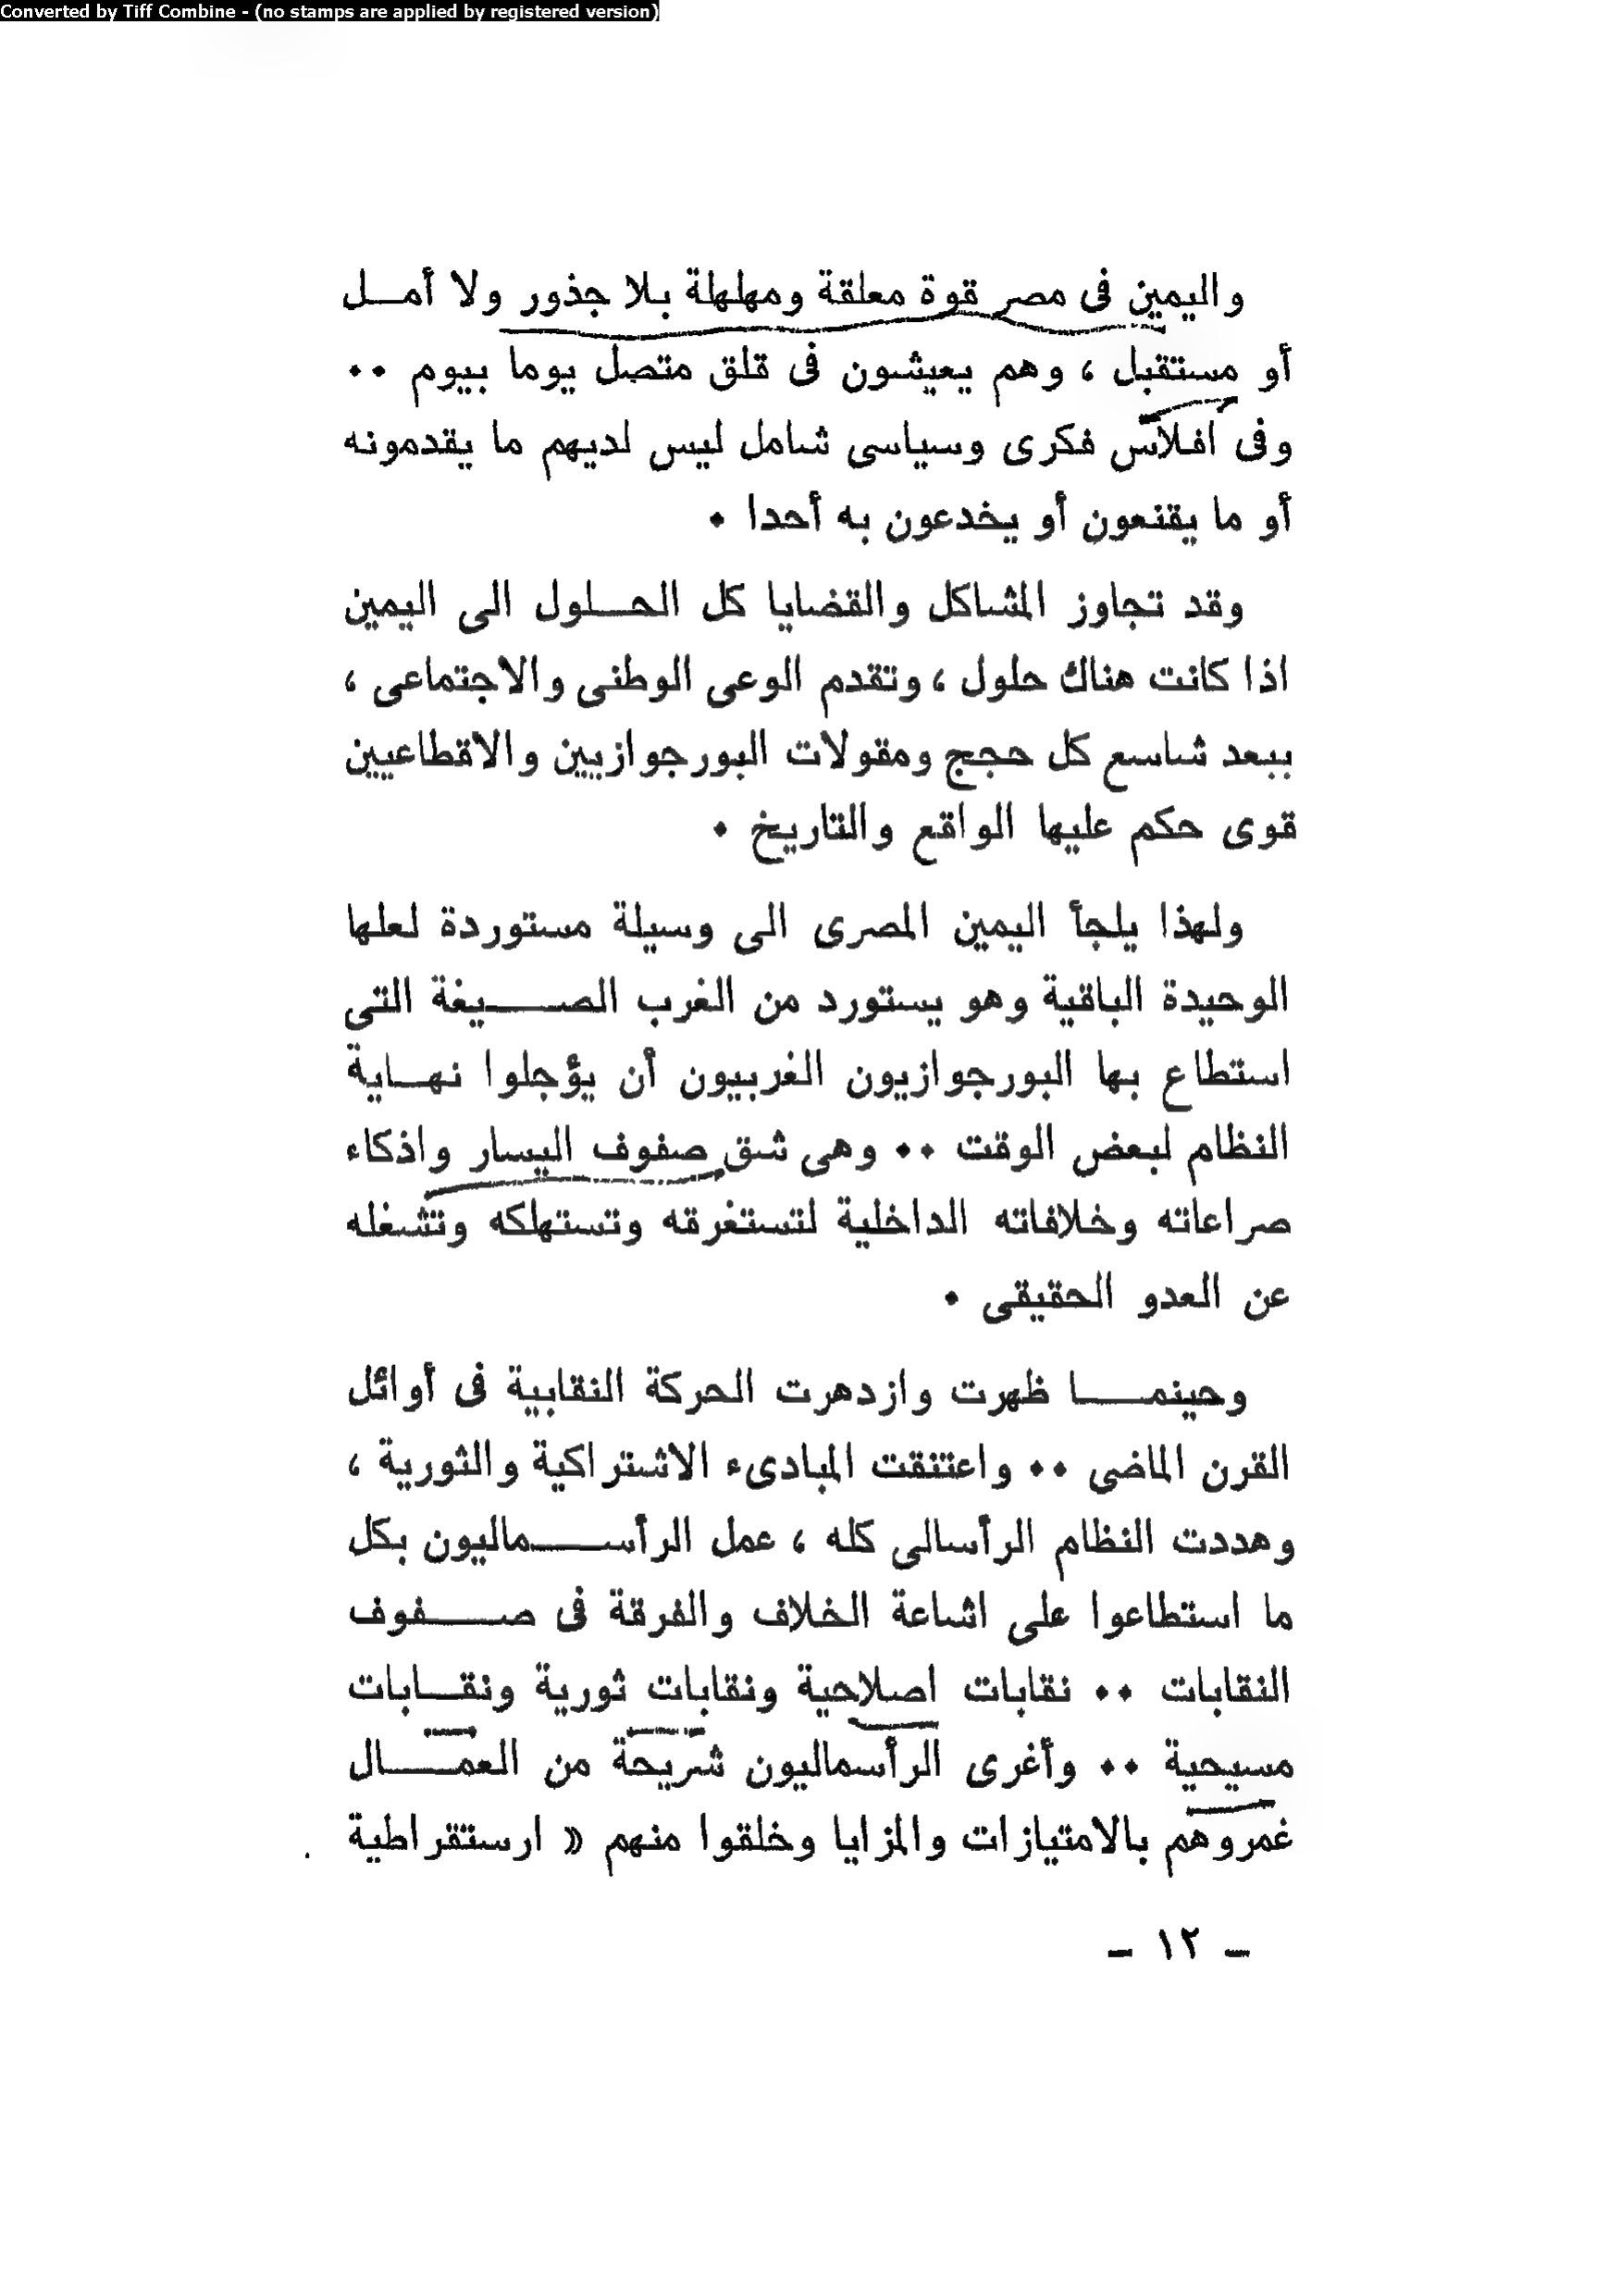 Converted by Tiff Combine - (no stamps are applied by registered version)
واليمين فى مصر قوة معلقة ومهلهلة بلا جذور ولا أمــل
أو مستقبل ، وهم يعيشون فى قلق متصل يوما بيوم ٠٠
وفى افلاس فكرى وسياسى شامل ليس لديهم ما يقدمونه
أو ما يقنعون أو يخدعون به أحدا ٠
وقد تجاوز المشاكل والقضايا كل الحــلول الى اليمين
اذا كانت هناك حلول ، وتقدم الوعى الوطنى والاجتماعى ،
ببعد شاسع كل حجج ومقولات البورجوازيين والاقطاعيين
قوى حكم عليها الواقع والتاريخ ٠
ولهذا يلجأ اليمين المصرى الى وسيلة مستوردة لعلها
الوحيدة الباقية وهو يستورد من الغرب الصــيغة التى
استطاع بها البورجوازيون الغربيون أن يؤجلوا نهــاية
النظام لبعض الوقت ٠٠ وهى شق صفوف اليسار واذكاء
صراعاته وخلافاته الداخلية لتستغرقه وتستهلكه وتشغله
عن العدو الحقيقى ٠
وحينمــا ظهرت وازدهرت الحركة النقابية فى أوائل
القرن الماضى ٠٠ واعتنقت المبادىء الاشتراكية والثورية ،
وهددت النظام الرأسالى كله ، عمل الرأســماليون بكل
ما استطاعوا على اشاعة الخلاف والفرقة فى صــفوف
النقابات ٠٠ نقابات اصلاحية ونقابات ثورية ونقــابات
مسيحية ٠٠ وأغرى الرأسماليون شريحة من العمــال
غمروهم بالامتيازات والمزايا وخلقوا منهم « ارستقراطية
– ١٢ –